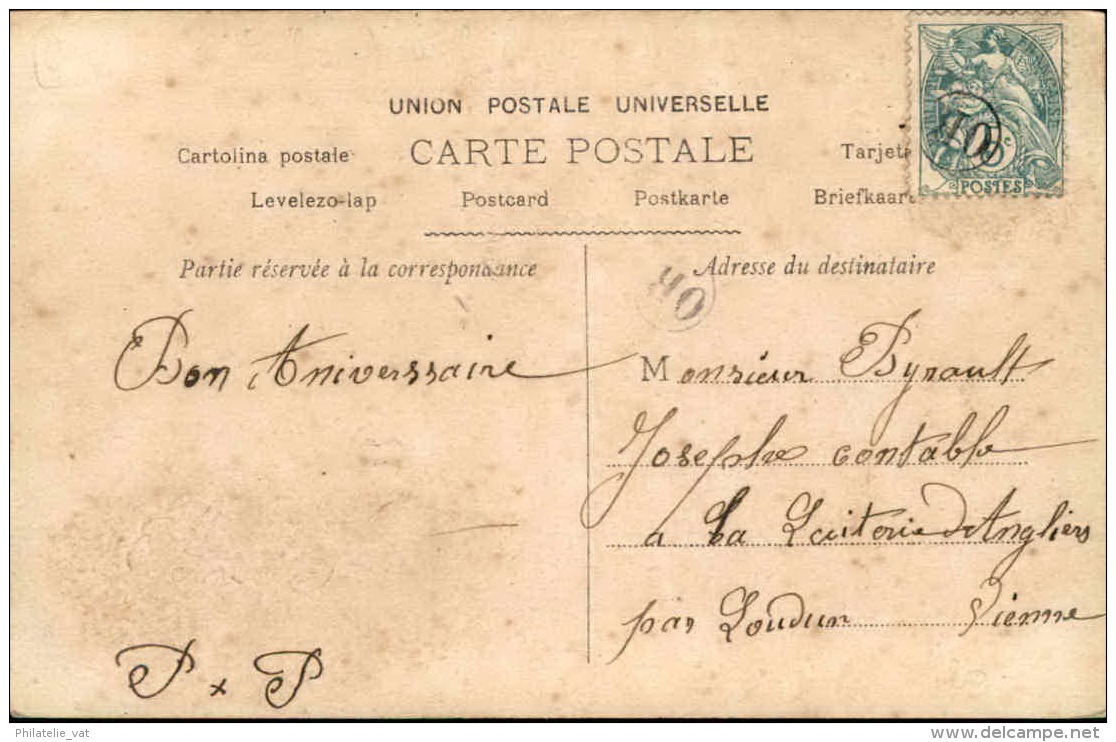 UNION POSTALE UNIVERSELLE
Cartolina postale CARTE POSTALE Tarjeta
Levelezo-lap Postcard Postkarte Briefkaart
5c
POSTES
Partie réservée à la correspondance
Adresse du destinataire
Bon Aniverssaire
Monsieur Pyrault
Josephe contable
a La Laiterie d'Angliers
par Loudun Vienne
P x P
Philatelie_vat
www.delcampe.net